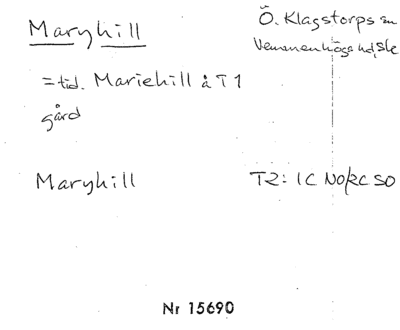 Maryhill
Ö. Klagstorps sn
Vemmenhögs hd, Sk
= tid. Mariehill å T1
gård
Maryhill
T2: 1C NO/2C SO
Nr 15690